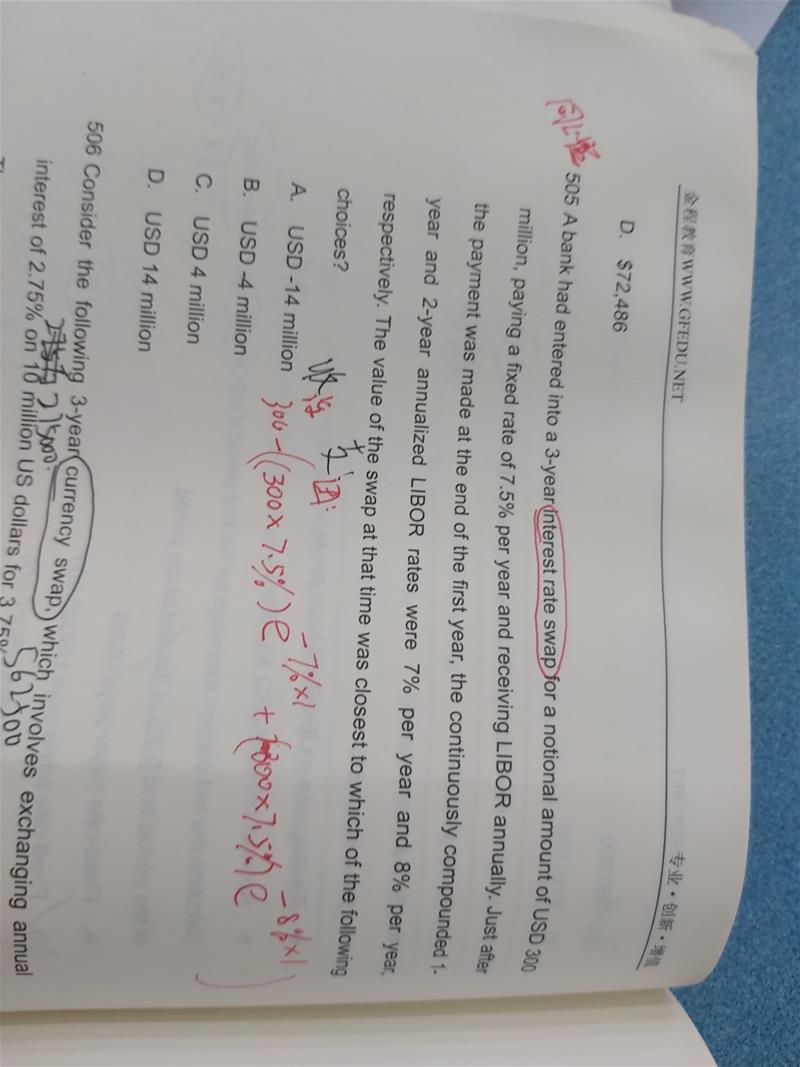 金程教育WWW.GFEDU.NET 专业·创新·增值
D. $72,486
505 A bank had entered into a 3-year interest rate swap for a notional amount of USD 300
million, paying a fixed rate of 7.5% per year and receiving LIBOR annually. Just after
the payment was made at the end of the first year, the continuously compounded 1-
year and 2-year annualized LIBOR rates were 7% per year and 8% per year,
respectively. The value of the swap at that time was closest to which of the following
choices?
A. USD -14 million
B. USD -4 million
300-((300×7.5%)e^-7%×1 + (300×7.5%)e^-8%×1)
C. USD 4 million
D. USD 14 million
506 Consider the following 3-year currency swap, which involves exchanging annual
interest of 2.75% on 10 million US dollars for 3.75%
562500